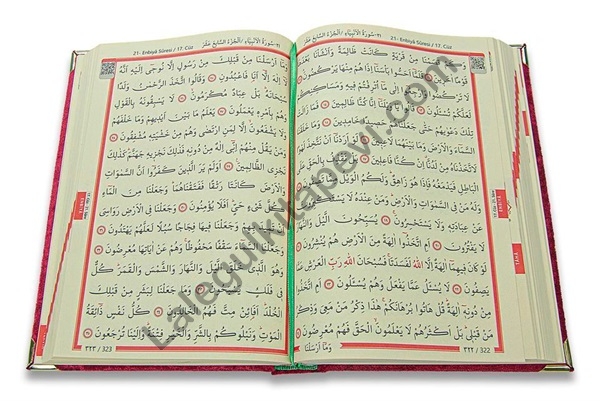 21- Enbiyâ Sûresi / 17. Cüz
وَكَمْ قَصَمْنَا مِنْ قَرْيَةٍ كَانَتْ ظَالِمَةً وَاَنْشَأْنَا بَعْدَهَا
قَوْمًا اٰخَرِينَ فَلَمَّا اَحَسُّوا بَأْسَنَا اِذَا هُمْ مِنْهَا يَرْكُضُونَ
لَا تَرْكُضُوا وَارْجِعُوا اِلٰى مَا اُتْرِفْتُمْ فِيهِ وَمَسَاكِنِكُمْ
لَعَلَّكُمْ تُسْئَلُونَ قَالُوا يَا وَيْلَنَا اِنَّا كُنَّا ظَالِمِينَ فَمَا زَالَتْ
تِلْكَ دَعْوٰيهُمْ حَتّٰى جَعَلْنَاهُمْ حَصِيدًا خَامِدِينَ وَمَا خَلَقْنَا
السَّمَاءَ وَالْاَرْضَ وَمَا بَيْنَهُمَا لَاعِبِينَ لَوْ اَرَدْنَا اَنْ نَتَّخِذَ لَهْوًا
لَاتَّخَذْنَاهُ مِنْ لَدُنَّا اِنْ كُنَّا فَاعِلِينَ بَلْ نَقْذِفُ بِالْحَقِّ عَلَى
الْبَاطِلِ فَيَدْمَغُهُ فَاِذَا هُوَ زَاهِقٌ وَلَكُمُ الْوَيْلُ مِمَّا تَصِفُونَ
وَلَهُ مَنْ فِي السَّمٰوَاتِ وَالْاَرْضِ وَمَنْ عِنْدَهُ لَا يَسْتَكْبِرُونَ
عَنْ عِبَادَتِهِ وَلَا يَسْتَحْسِرُونَ يُسَبِّحُونَ الَّيْلَ وَالنَّهَارَ
لَا يَفْتُرُونَ اَمِ اتَّخَذُوا اٰلِهَةً مِنَ الْاَرْضِ هُمْ يُنْشِرُونَ
لَوْ كَانَ فِيهِمَا اٰلِهَةٌ اِلَّا اللّٰهُ لَفَسَدَتَا فَسُبْحَانَ اللّٰهِ رَبِّ الْعَرْشِ عَمَّا
يَصِفُونَ لَا يُسْئَلُ عَمَّا يَفْعَلُ وَهُمْ يُسْئَلُونَ اَمِ اتَّخَذُوا
مِنْ دُونِهِ اٰلِهَةً قُلْ هَاتُوا بُرْهَانَكُمْ هٰذَا ذِكْرُ مَنْ مَعِيَ وَذِكْرُ
مَنْ قَبْلِي بَلْ اَكْثَرُهُمْ لَا يَعْلَمُونَ الْحَقَّ فَهُمْ مُعْرِضُونَ
وَمَا اَرْسَلْنَا
٣٢٢ / 322
21- Enbiyâ Sûresi / 17. Cüz
٢١-سُورَةُ الْاَنْبِيَاءِ / اَلْجُزْءُ السَّابِعُ عَشَرَ
وَمَا اَرْسَلْنَا مِنْ قَبْلِكَ مِنْ رَسُولٍ اِلَّا نُوحِي اِلَيْهِ اَنَّهُ
لَا اِلٰهَ اِلَّا اَنَا فَاعْبُدُونِ وَقَالُوا اتَّخَذَ الرَّحْمٰنُ وَلَدًا
سُبْحَانَهُ بَلْ عِبَادٌ مُكْرَمُونَ لَا يَسْبِقُونَهُ بِالْقَوْلِ
وَهُمْ بِاَمْرِهِ يَعْمَلُونَ يَعْلَمُ مَا بَيْنَ اَيْدِيهِمْ وَمَا خَلْفَهُمْ
وَلَا يَشْفَعُونَ اِلَّا لِمَنِ ارْتَضٰى وَهُمْ مِنْ خَشْيَتِهِ مُشْفِقُونَ
وَمَنْ يَقُلْ مِنْهُمْ اِنِّي اِلٰهٌ مِنْ دُونِهِ فَذٰلِكَ نَجْزِيهِ جَهَنَّمَ كَذٰلِكَ
نَجْزِي الظَّالِمِينَ اَوَلَمْ يَرَ الَّذِينَ كَفَرُوا اَنَّ السَّمٰوَاتِ
وَالْاَرْضَ كَانَتَا رَتْقًا فَفَتَقْنَاهُمَا وَجَعَلْنَا مِنَ الْمَاءِ
كُلَّ شَيْءٍ حَيٍّ اَفَلَا يُؤْمِنُونَ وَجَعَلْنَا فِي الْاَرْضِ رَوَاسِيَ
اَنْ تَمِيدَ بِهِمْ وَجَعَلْنَا فِيهَا فِجَاجًا سُبُلًا لَعَلَّهُمْ يَهْتَدُونَ
وَجَعَلْنَا السَّمَاءَ سَقْفًا مَحْفُوظًا وَهُمْ عَنْ اٰيَاتِهَا مُعْرِضُونَ
وَهُوَ الَّذِي خَلَقَ الَّيْلَ وَالنَّهَارَ وَالشَّمْسَ وَالْقَمَرَ كُلٌّ
فِي فَلَكٍ يَسْبَحُونَ وَمَا جَعَلْنَا لِبَشَرٍ مِنْ قَبْلِكَ
الْخُلْدَ اَفَائِنْ مِتَّ فَهُمُ الْخَالِدُونَ كُلُّ نَفْسٍ ذَائِقَةُ
الْمَوْتِ وَنَبْلُوكُمْ بِالشَّرِّ وَالْخَيْرِ فِتْنَةً وَاِلَيْنَا تُرْجَعُونَ
٣٢٣ / 323
Lalegulkitapevi.com